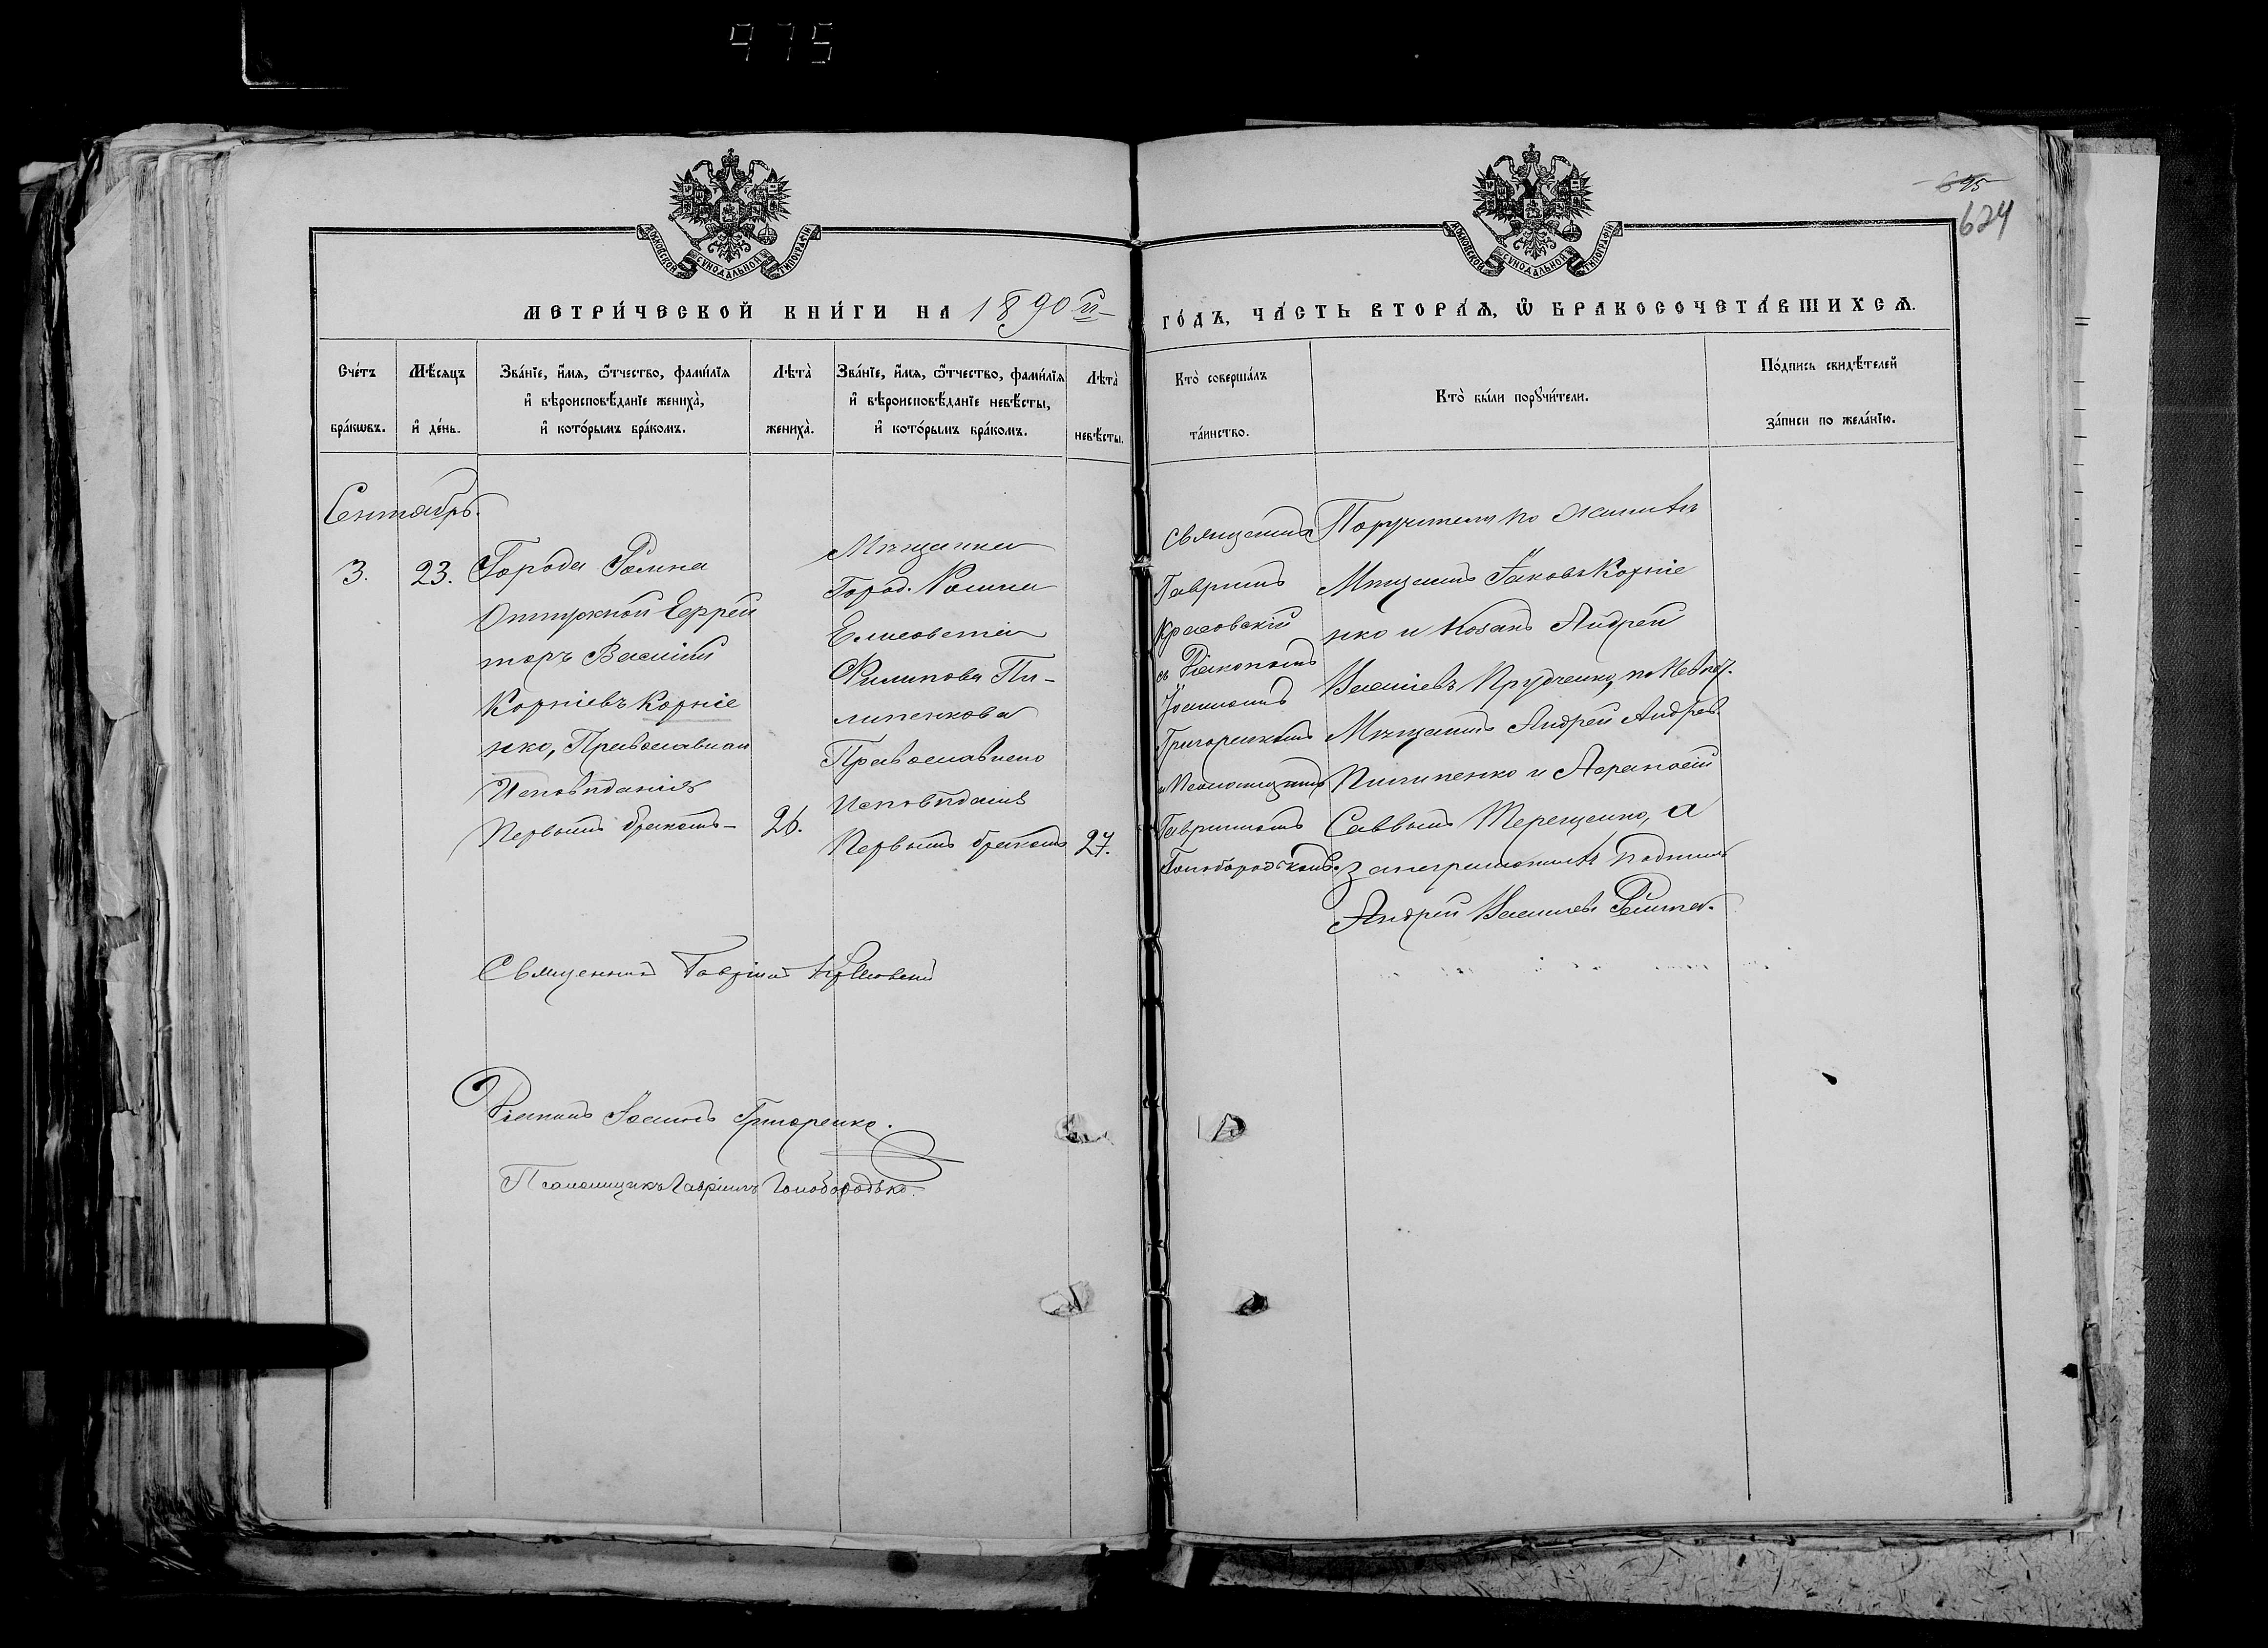 975
695
624
МОСКОВСКОЙ СѴНОДАЛЬНОЙ ТИПОГРАФІИ
МОСКОВСКОЙ СѴНОДАЛЬНОЙ ТИПОГРАФІИ
МЕТРИ́ЧЕСКОЙ КНИ́ГИ НА 1890й
ГО́ДЪ, ЧА́СТЬ ВТОРА́Ѧ, Ѽ БРАКОСОЧЕТА́ВШИХСѦ.
Сче́тъ
бра́кѡвъ.
Мѣ́сѧцъ
и҆ де́нь.
Зва́нїе, и҆́мѧ, ѻ҆́тчество, фами́лїѧ
и҆ вѣроисповѣ́данїе жениха̀,
и҆ кото́рымъ бра́комъ.
Лѣта̀
жениха̀.
Зва́нїе, и҆́мѧ, ѻ҆́тчество, фами́лїѧ
и҆ вѣроисповѣ́данїе невѣ́сты,
и҆ кото́рымъ бра́комъ.
Лѣта̀
невѣ́сты.
Кто̀ соверша́лъ
та́инство.
Кто̀ бы́ли порꙋчи́тели.
По́дпись свидѣ́телей
за́писи по жела́нїю.
Сентябрь.
3.
23.
Города Ромна
Отпускной Ефрей
торъ Василій
Корніевъ Корніе
нко, Православнаго
Исповѣданія
Первымъ бракомъ
26.
Мѣщанка
Город. Ромна
Елисавета
Филипова Пи-
липенкова
Православнаго
Исповѣданія
Первымъ бракомъ
27.
Священникъ
Гавріилъ
Красовскій
съ Діакономъ
Іоанномъ
Григоренкомъ
и Псаломщикомъ
Гавріиломъ
Голобородькомъ.
Поручители по женихѣ
Мѣщанинъ Іаковъ Корніе
нко и Козакъ Андрей
Василіевъ Прудченко, по Невѣс.
Мѣщанинъ Андрей Андрев.
Пилипенко и Афанасій
Саввинъ Терещенко, а
за неграмотныхъ подписал
Андрей Василіевъ
Священникъ Гавріилъ Красовскій
Діаконъ Іоаннъ Григоренко.
Псаломщикъ Гавріилъ Голобородько.